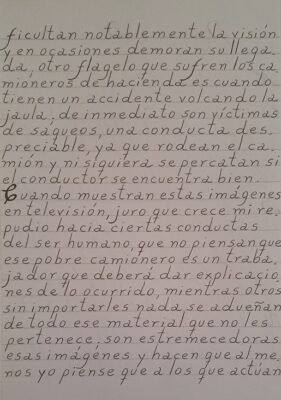 ficultan notablemente la visión
y en ocasiones demoran su llega_
da, otro flagelo que sufren los ca_
mioneros de hacienda es cuando
tienen un accidente volcando la
jaula; de inmediato son víctimas
de saqueos, una conducta des_
preciable, ya que rodean el ca_
mión y ni siquiera se percatan si
el conductor se encuentra bien.
Cuando muestran estas imágenes
en televisión, juro que crece mi re_
pudio hacia ciertas conductas
del ser humano, que no piensan que
ese pobre camionero es un traba_
jador que deberá dar explicacio_
nes de lo ocurrido, mientras otros
sin importarles nada, se adueñan
de todo ese material que no les
pertenece; son estremecedoras
esas imágenes y hacen que al me_
nos yo piense que a los que actúan